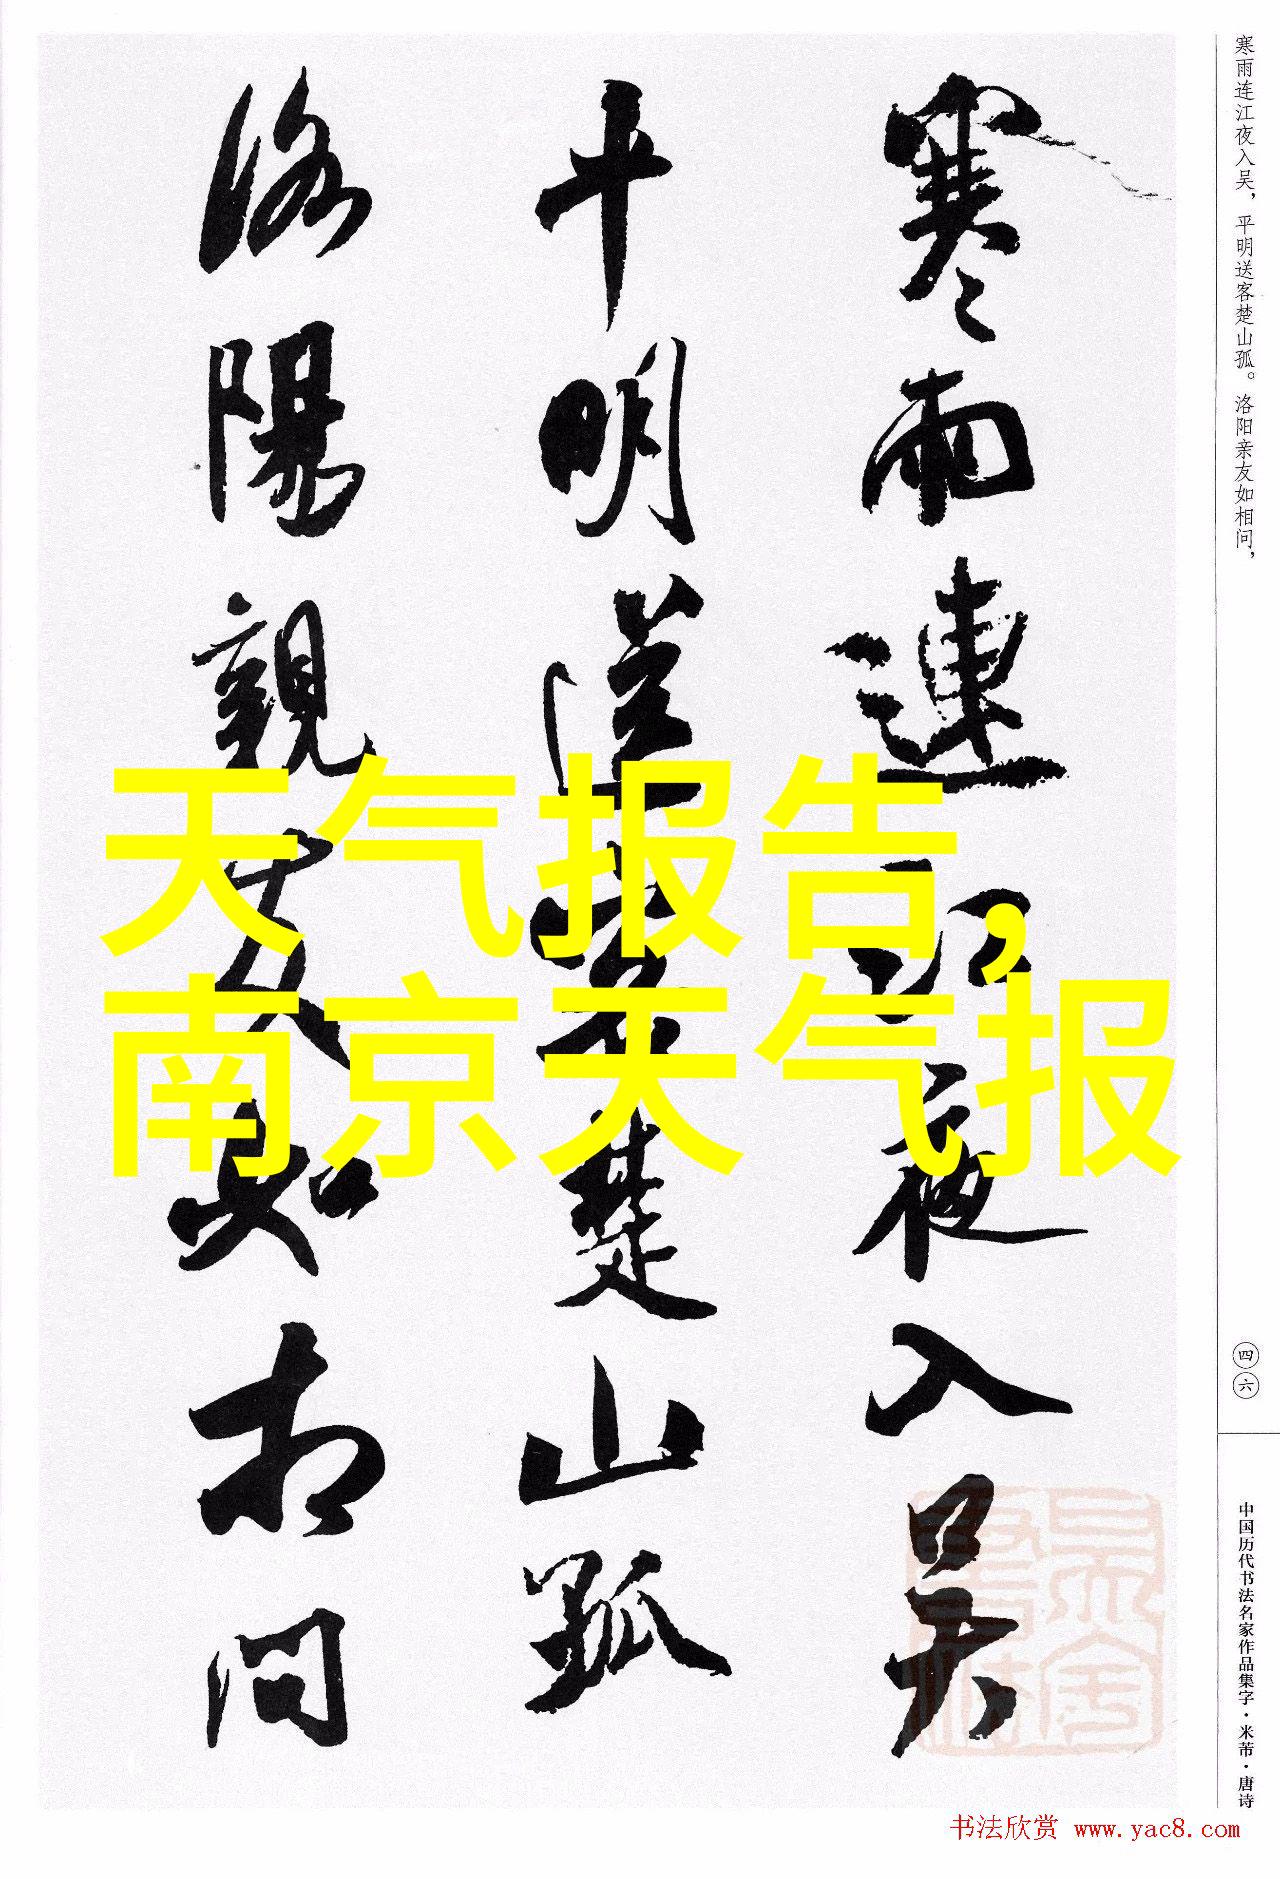 寒雨連江夜入吴
平明送客楚山孤
洛陽親友如相问
寒雨连江夜入吴，平明送客楚山孤。洛阳亲友如相问，
天气报告，
南京天气报
四六
中国历代书法名家作品集字·米芾·唐诗
书法欣赏 www.yac8.com